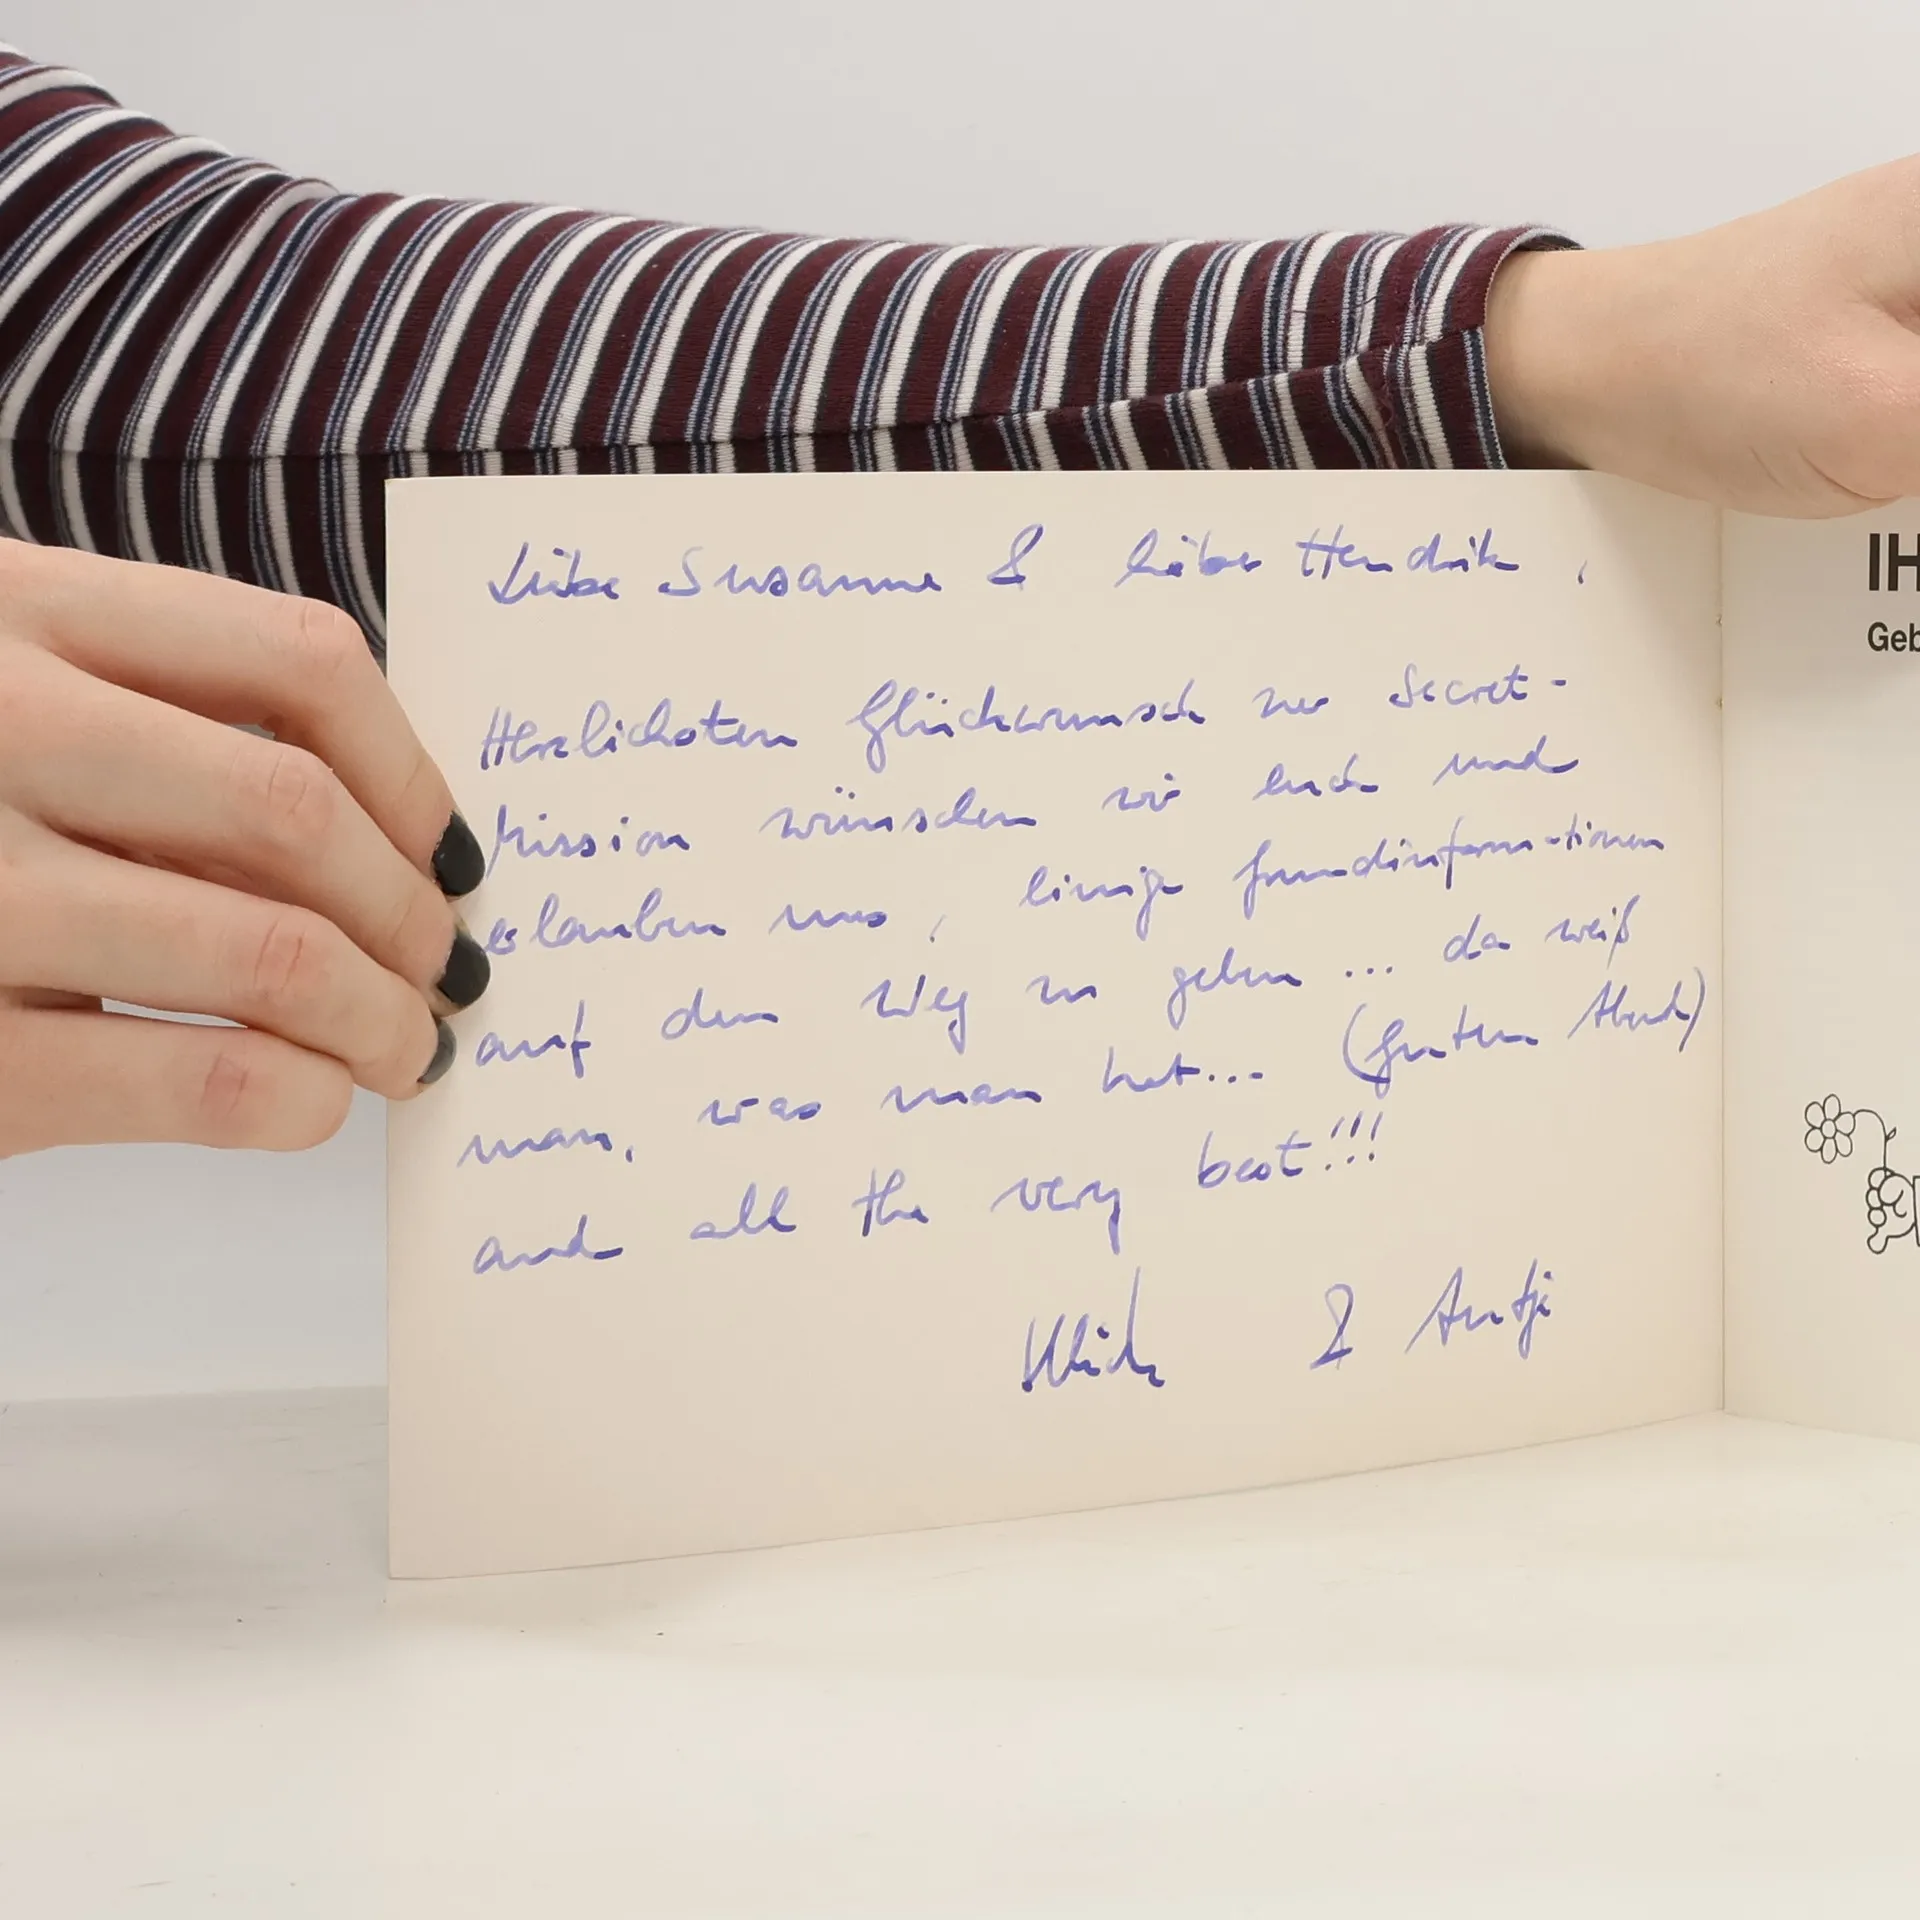 Liebe Susanne & lieber Hendrik,
Herzlichsten Glückwunsch zur Secret-
Mission wünschen wir euch und
erlauben uns, einige Grundinforma-tionen
auf den Weg zu geben ... da weiß
man, was man hat... (Guten Abend)
and all the very best!!!
& Antje
IH
Geb